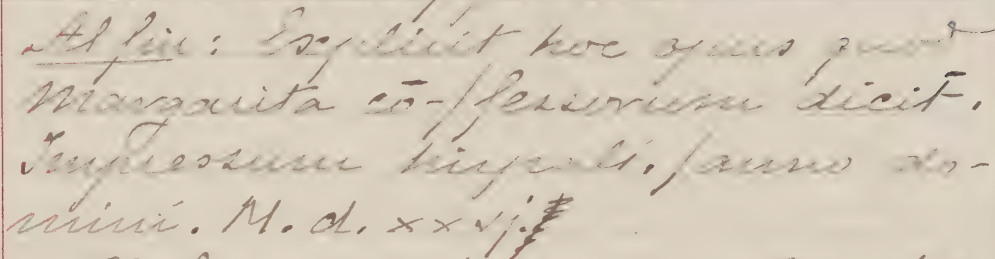 Al fin: Explicit hoc opus quod
Margarita cō-/fessorum dicit̄.
Impressum hispali./anno do-
mini. M. d. xxvj.